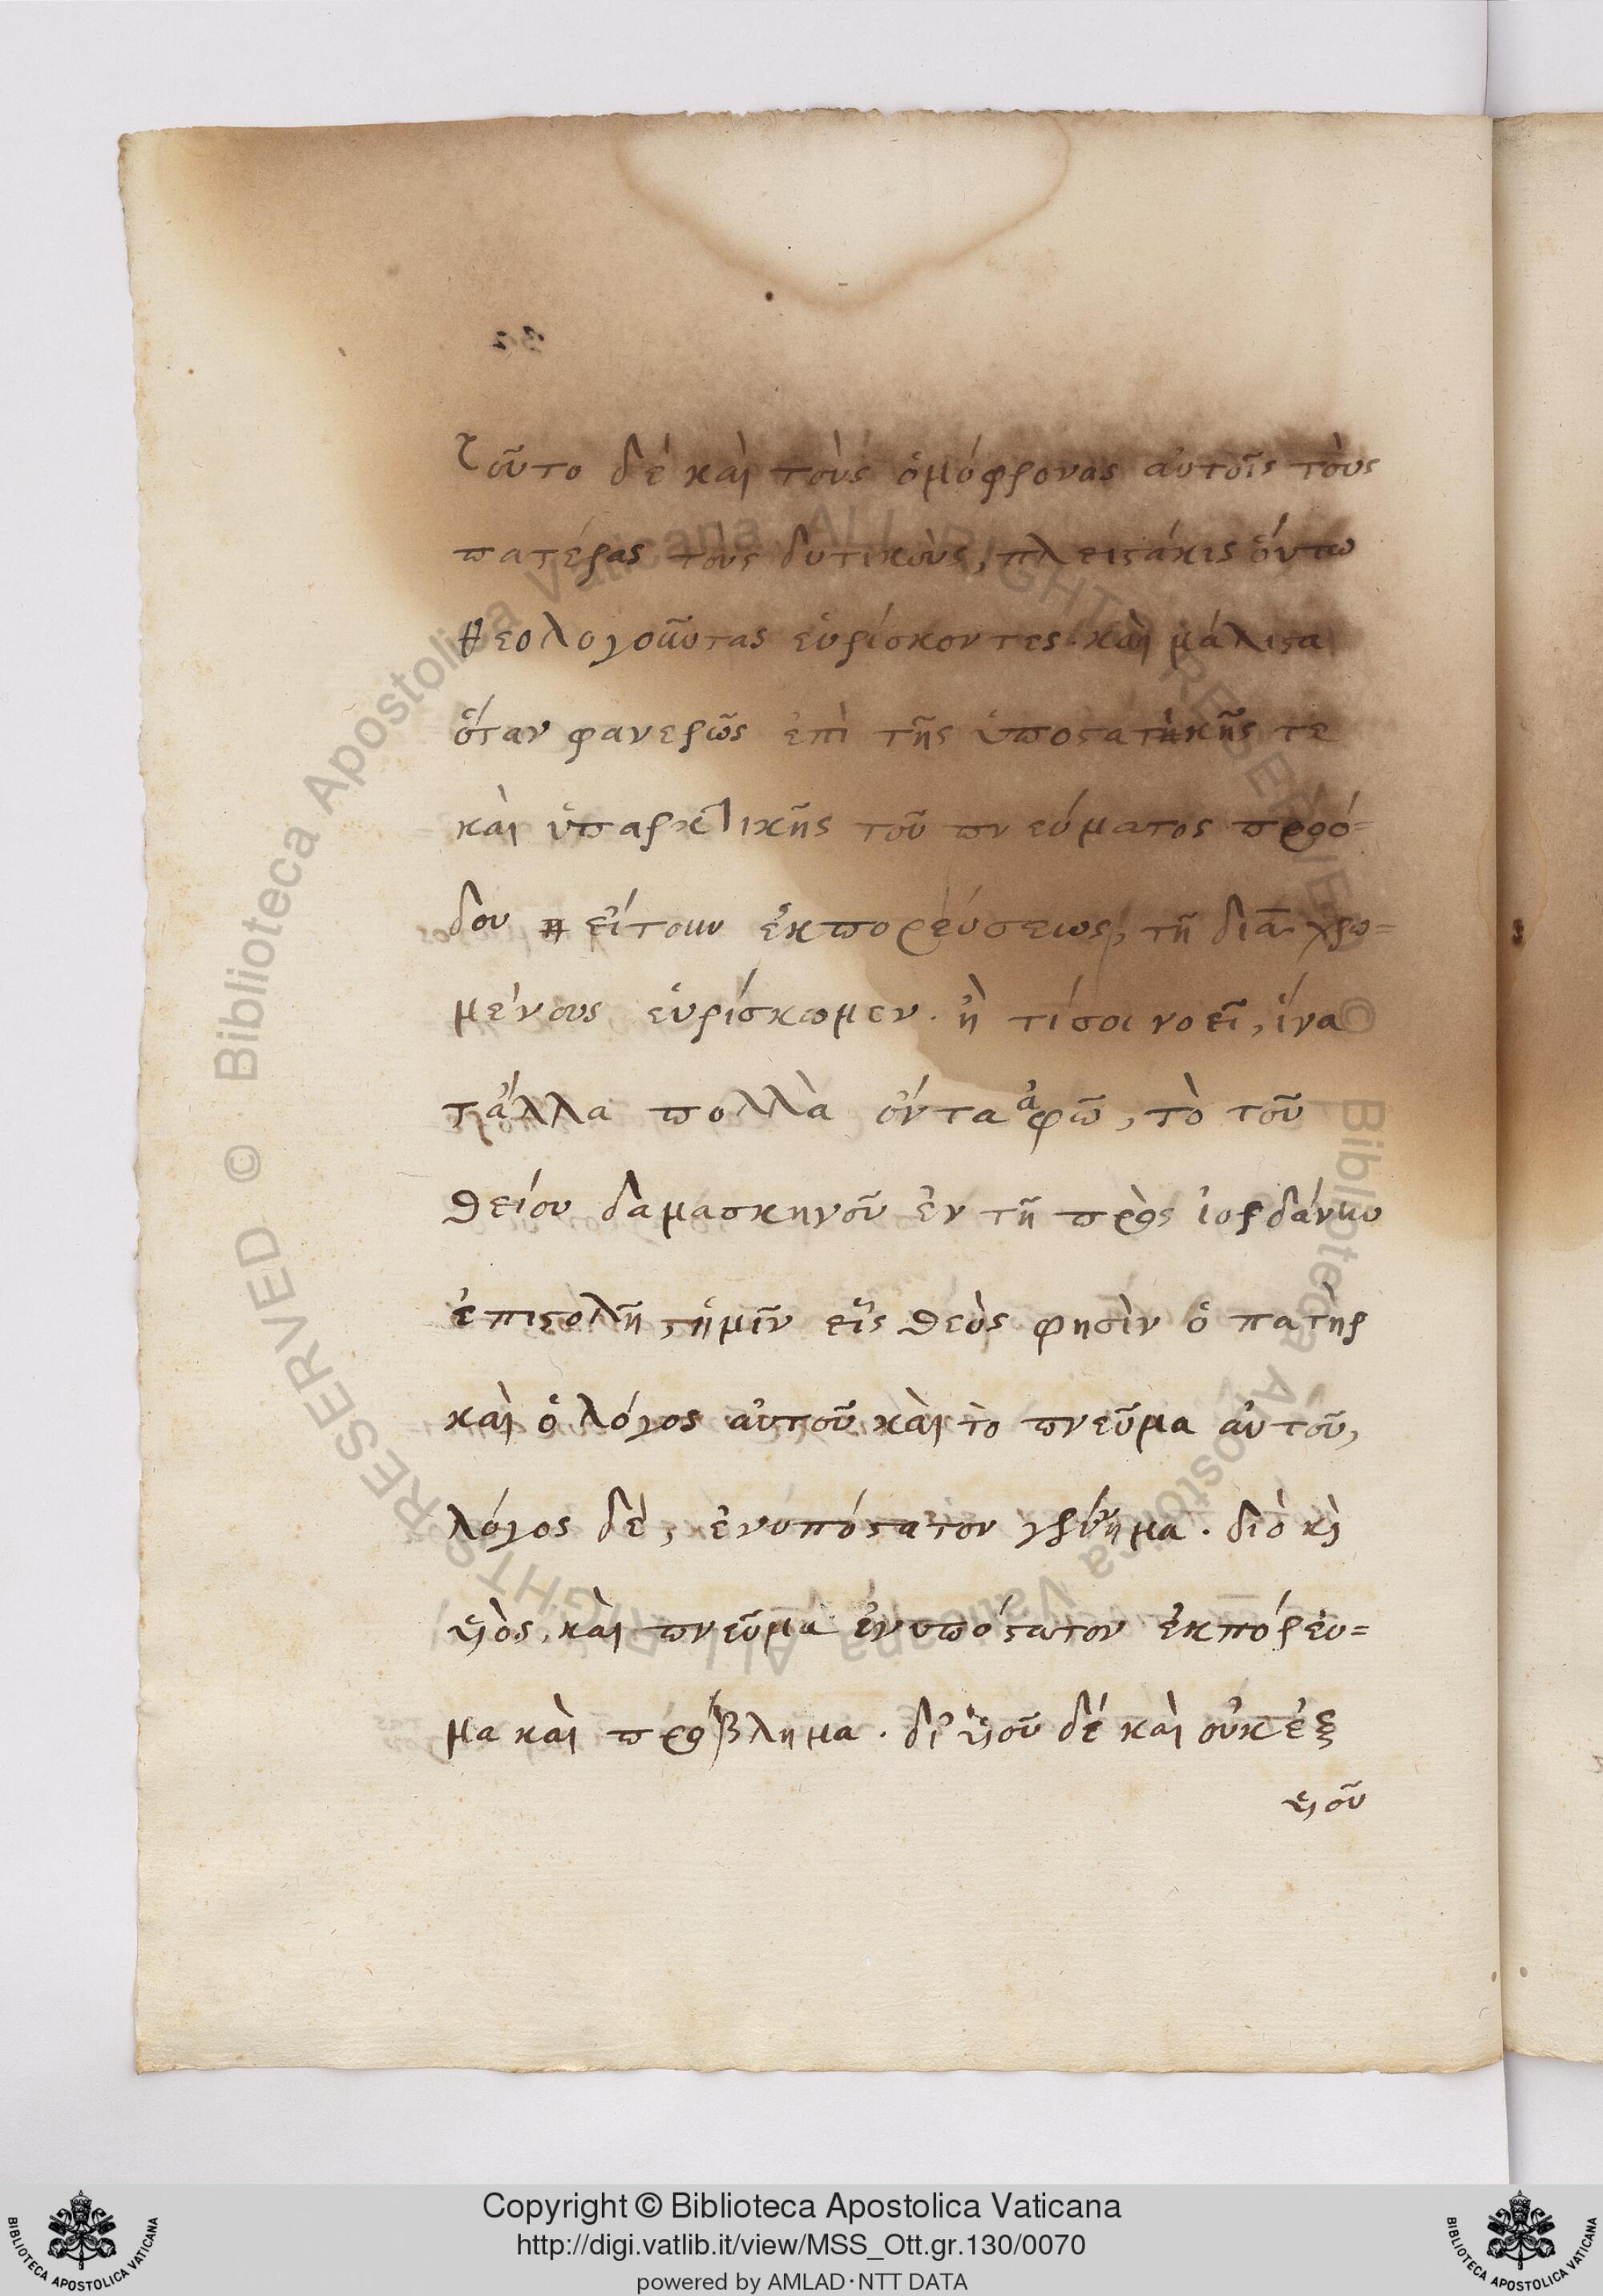 τοῦτο δὲ καὶ τοὺς ὁμόφρονας αὐτοῖς τοὺς
πατέρας τους δυτικοὺς, πλειστάκις οὕτω
θεολογοῦντας εὑρίσκοντες. καὶ μάλιστα
ὅταν φανερῶς ἐπὶ τῆς ὑποστατικῆς τε
καὶ ὑπαρκτικῆς τοῦ πνεύματος προό=
δου εἴτουν ἐκπορεύσεως, τῇ διὰ χρω=
μένους εὑρίσκωμεν. ἢ τί σοι νοεῖ, ἵνα
τἄλλα πολλὰ ὄντα ἀφῶ, τὸ τοῦ
θείου δαμασκηνοῦ ἐν τῇ πρὸς ἰορδάνην
ἐπιστολῇ, ἡμῖν εἷς θεὸς φησὶν ὁ πατὴρ
καὶ ὁ λόγος αὐτοῦ καὶ τὸ πνεῦμα αὐτοῦ,
λόγος δέ, ἐνυπόστατον γέννημα. διὸ κὶ
υἱὸς. καὶ πνεῦμα ἐνυπόστατον ἐκπόρευ=
μα καὶ πρόβλημα. δι' υἱοῦ δέ καὶ οὐκ ἐξ
υἱοῦ
32
Copyright © Biblioteca Apostolica Vaticana
http://digi.vatlib.it/view/MSS_Ott.gr.130/0070
powered by AMLAD·NTT DATA
BIBLIOTECA APOSTOLICA VATICANA
BIBLIOTECA APOSTOLICA VATICANA
© Biblioteca Apostolica Vaticana ALL RIGHTS RESERVED
© Biblioteca Apostolica Vaticana ALL RIGHTS RESERVED